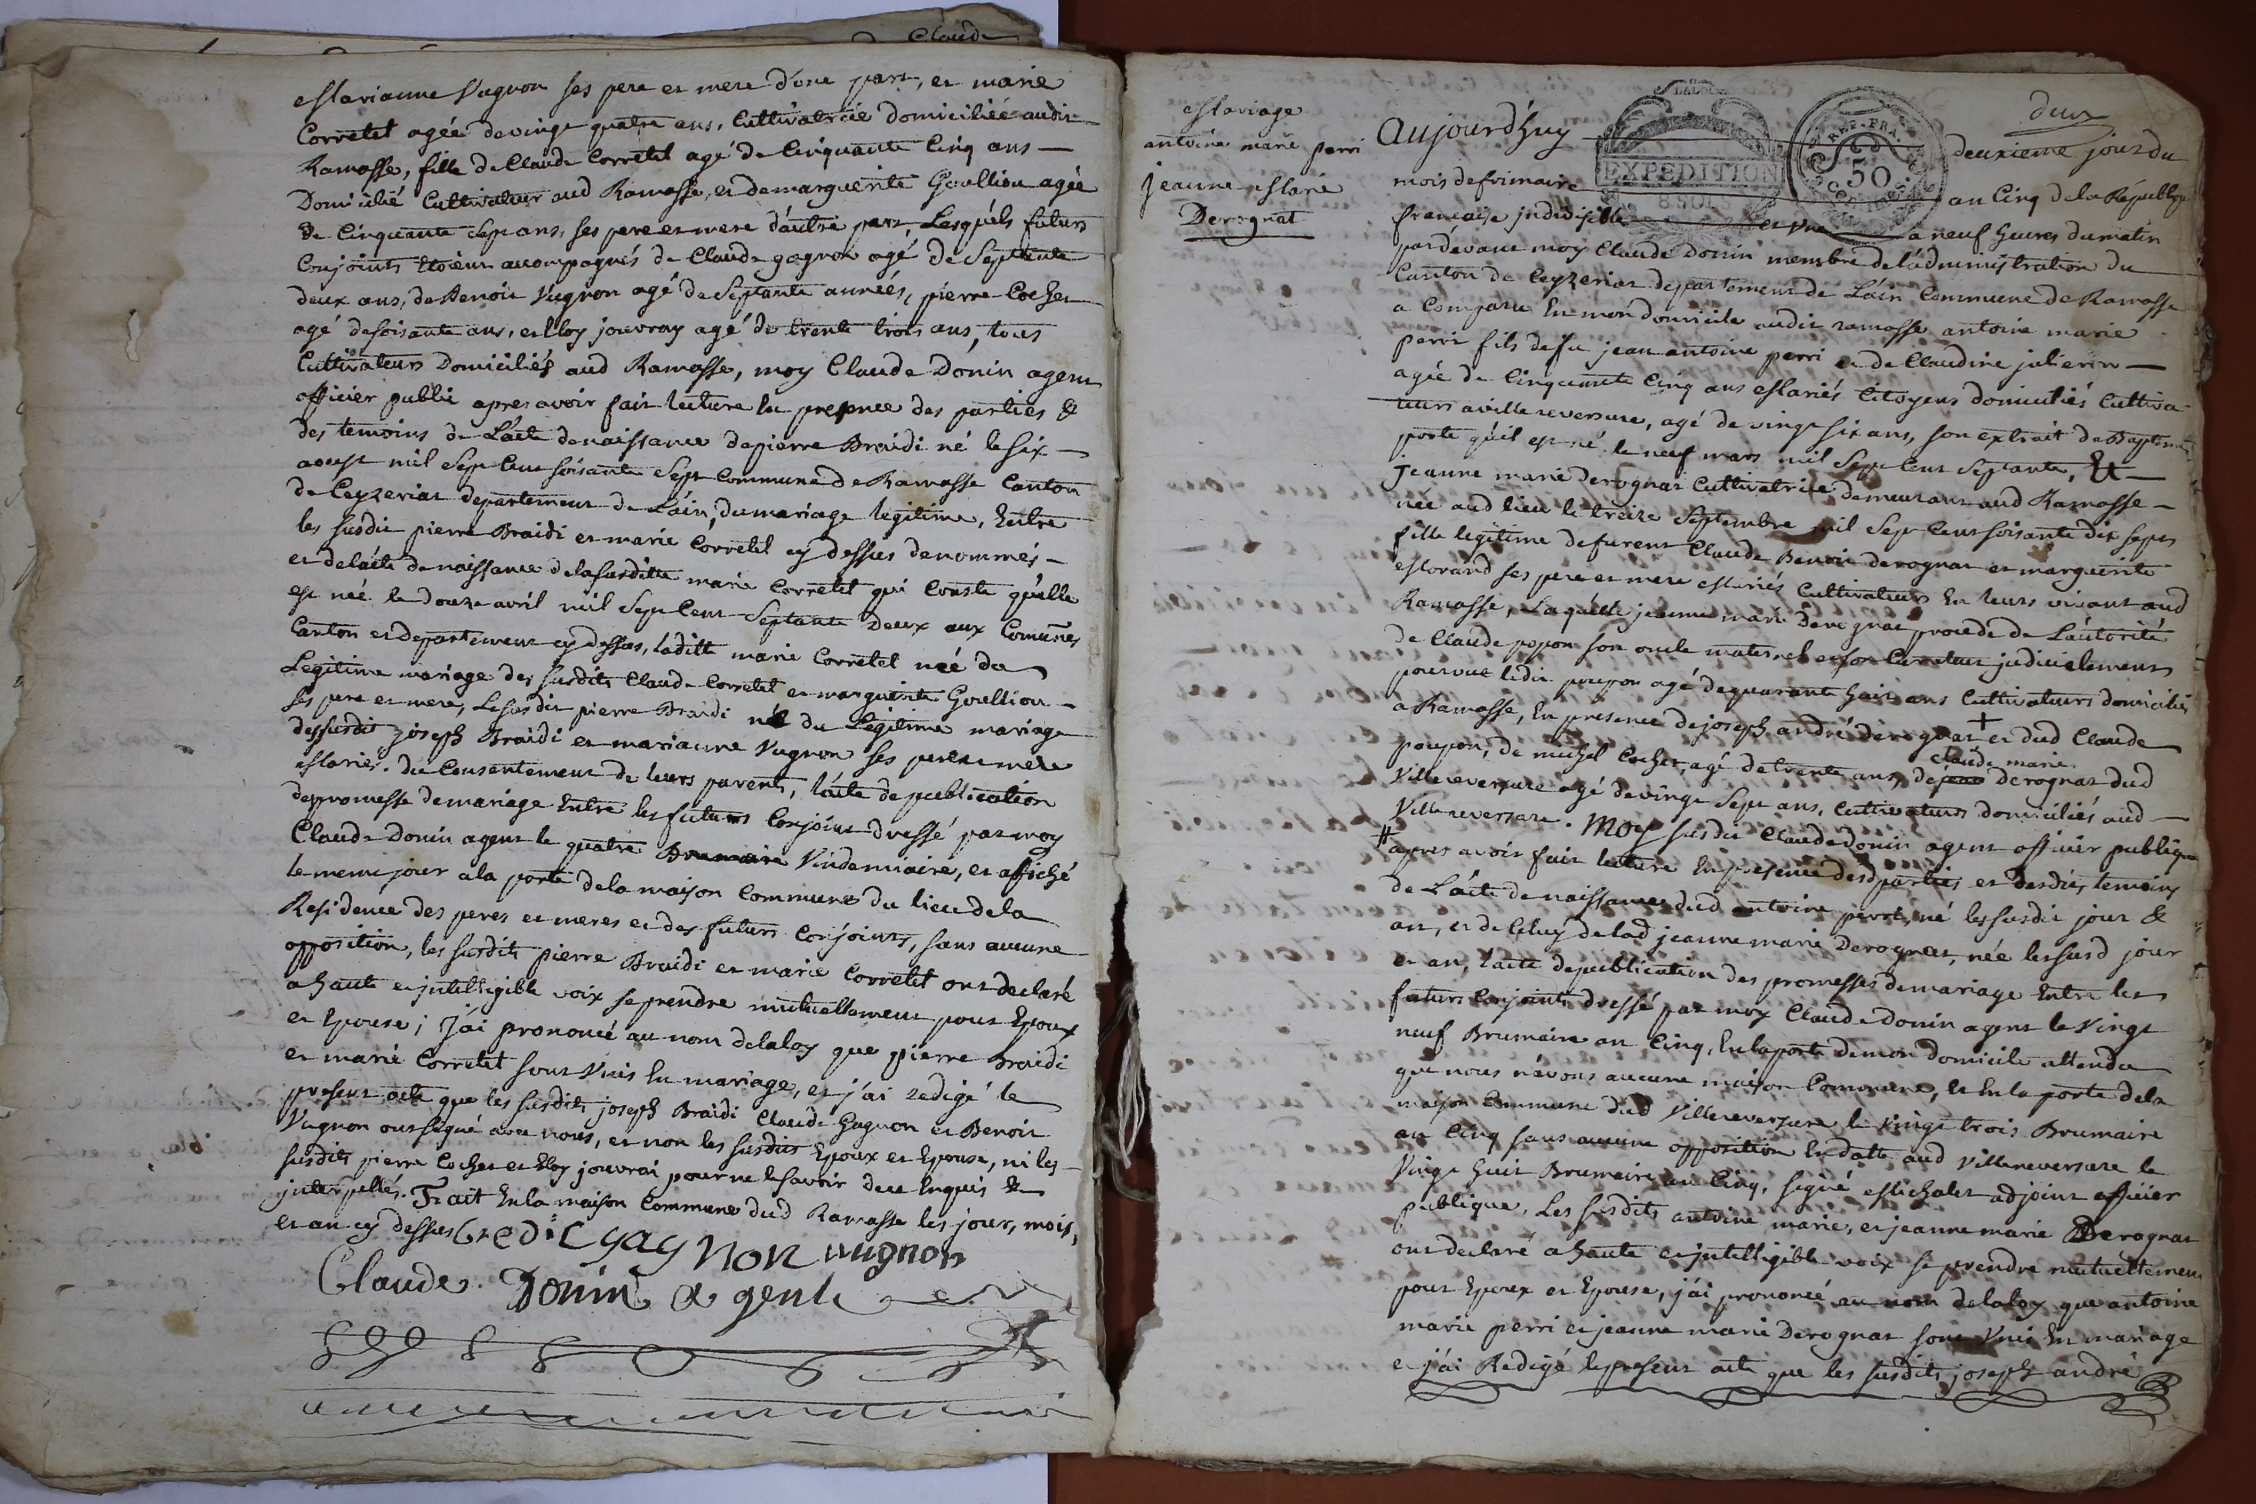 Claude
Marianne Vugnon ses pere et mere d'une part, et marie
Corretel agée de vingt quatre ans, Cultivatrice domiciliée audit
Ramasse, fille de Claude Corretel agé de Cinquante Cinq ans
Domicilié Cultivateur aud Ramasse, et de marguerite Gouilliou agée
de Cinquante Sept ans, ses pere et mere d'autre part, Lesquels futurs
Conjoints Etoient accompagnés de Claude gagnon agé de Septante
deux ans, de Benoit Vugnon agé de Septante années, pierre Cochet
agé de soisante ans, et Eloy jouvray agé de trente trois ans, tous
Cultivateurs Domiciliés aud Ramasse, moy Claude Donin agent
officier public apres avoir fait lecture En presence des parties &
des temoins de L'acte de naissance de pierre Braidi né le six
aoust mil Sept Cent soisante Sept Commune de Ramasse Canton
de Ceyzeriat departement de L'ain, du mariage legitime, Entre
les susdit pierre Braidi et marie Corretel cy dessus denommés
et de l'acte de naissance de la susditte marie Corretel qui Conste qu'elle
est née le douze avril mil Sept Cent Septante Deux aux Comunes
Canton et departement cy dessus, laditte marie Corretel née du
Legitime mariage des susdits Claude Corretel et marguerite Gouilliou
ses pere et mere, Le susdit pierre Braidi né du Legitime mariage
des susdit joseph Braidi et marianne Vugnon ses pere et mere
Mariés. du Consentement de leurs parents, l'acte de publication
de promesse de mariage Entre les futurs Conjoint dressé par moy
Claude Donin agent le quatre Brumaire Vindemiaire, et affiché
le meme jour a la porte de la maison Commune du lieu de la
Residence des peres et meres et des futurs Conjoints, sans aucune
opposition, les susdits pierre Braidi et marie Corretel ont declaré
a haute et jntelligible voix se prendre mutuellement pour Epoux
et Epouse; j'ai prononcé au nom de la loy que pierre Braidi
et marie Corretel sont Unis En mariage, et j'ai redigé le
present acte que les susdits joseph Braidi Claude Gagnon et Benoit
Vugnon ont signé avec nous, et non les susdits Epoux et Epouse, ni les
susdits pierre Cochet et Eloy jouvrai pour ne le savoir de ce Enquis &
jnterpellés. Fait En la maison Commune dud Ramasse les jour, mois,
et an cy dessus Gagnon vugnon
Claude Donin agent
deux
Mariage
antoine marie perri
jeanne Marie
Derognat
EXPEDITION
8 SOLS
REP. FRA.
50
Aujourd'huy deuxieme jour du
mois de frimaire an Cinq de la Républiq
française jndivisible et Une a neuf heures du matin
pardevant moy Claude Donin membre de l'administration du
Canton de Ceyzeriat departement de L'ain Commune de Ramasse
a Comparu En mon domicile audit ramasse antoine marie
perri fils de fu jean antoine perri et de Claudine julienn
agée de Cinquante Cinq ans Mariés Citoyens domiciliés Cultiva
teurs a villereversure, agé de vingt six ans, son extrait de Baptem
porte qu'il est né le neuf mars mil Sept Cent Septante, &
jeanne marie Derognat Cultivatrice demeurant aud Ramasse
née aud lieu le treize Septembre mil Sept Cent soisante dix sept
fille legitime defurent Claude Benoit derognat et marguerite
Morand ses pere et mere Mariés Cultivateurs En leurs vivant aud
Ramasse, Laquelle jeanne marie Derognat procede de L'autorité
de Claude popon son oncle maternel et son Curateur judicielement
pourvue ledit poupon agé de quarante huit ans Cultivateurs domiciliés
a Ramasse, En presence de joseph andré derognat + et dud Claude
poupon, de michel Cochet, agé de trente ans, de jean Derognat dud
Claude marie
Villereversure agé de vingt Sept ans, Cultivateurs domiciliés aud
Villereversure. Moy susdit Claude Donin agent officier publique
# apres avoir fait lecture En presence desd parties et desdits temoins
de L'acte de naissance dud antoine perri, né les susdit jour &
an, et de Celuy de lad jeanne marie Derognat, née les susd jour
et an, l'acte de publication des promesses de mariage Entre les
futurs Conjoints dressé par moy Claude Donin agent le Vingt
neuf Brumaire an Cinq, En la porte de mon domicile attendu
que nous n'avons aucune maison Commune, et En la porte de la
maison Commune dud Villereversure le vingt trois Brumaire
an Cinq sans aucune opposition En datte aud Villereversure le
Vingt huit Brumaire an Cinq, signé Michalet adjoint officier
publique, Les susdits antoine marie, et jeanne marie Derognat
ont declaré a haute et jntelligible voix se prendre mutuellement
pour Epoux et Epouse, j'ai prononcé au nom de la loy que antoine
marie perri et jeanne marie Derognat sont Unis En mariage
et j'ai Redigé le present acte que les susdits joseph andré